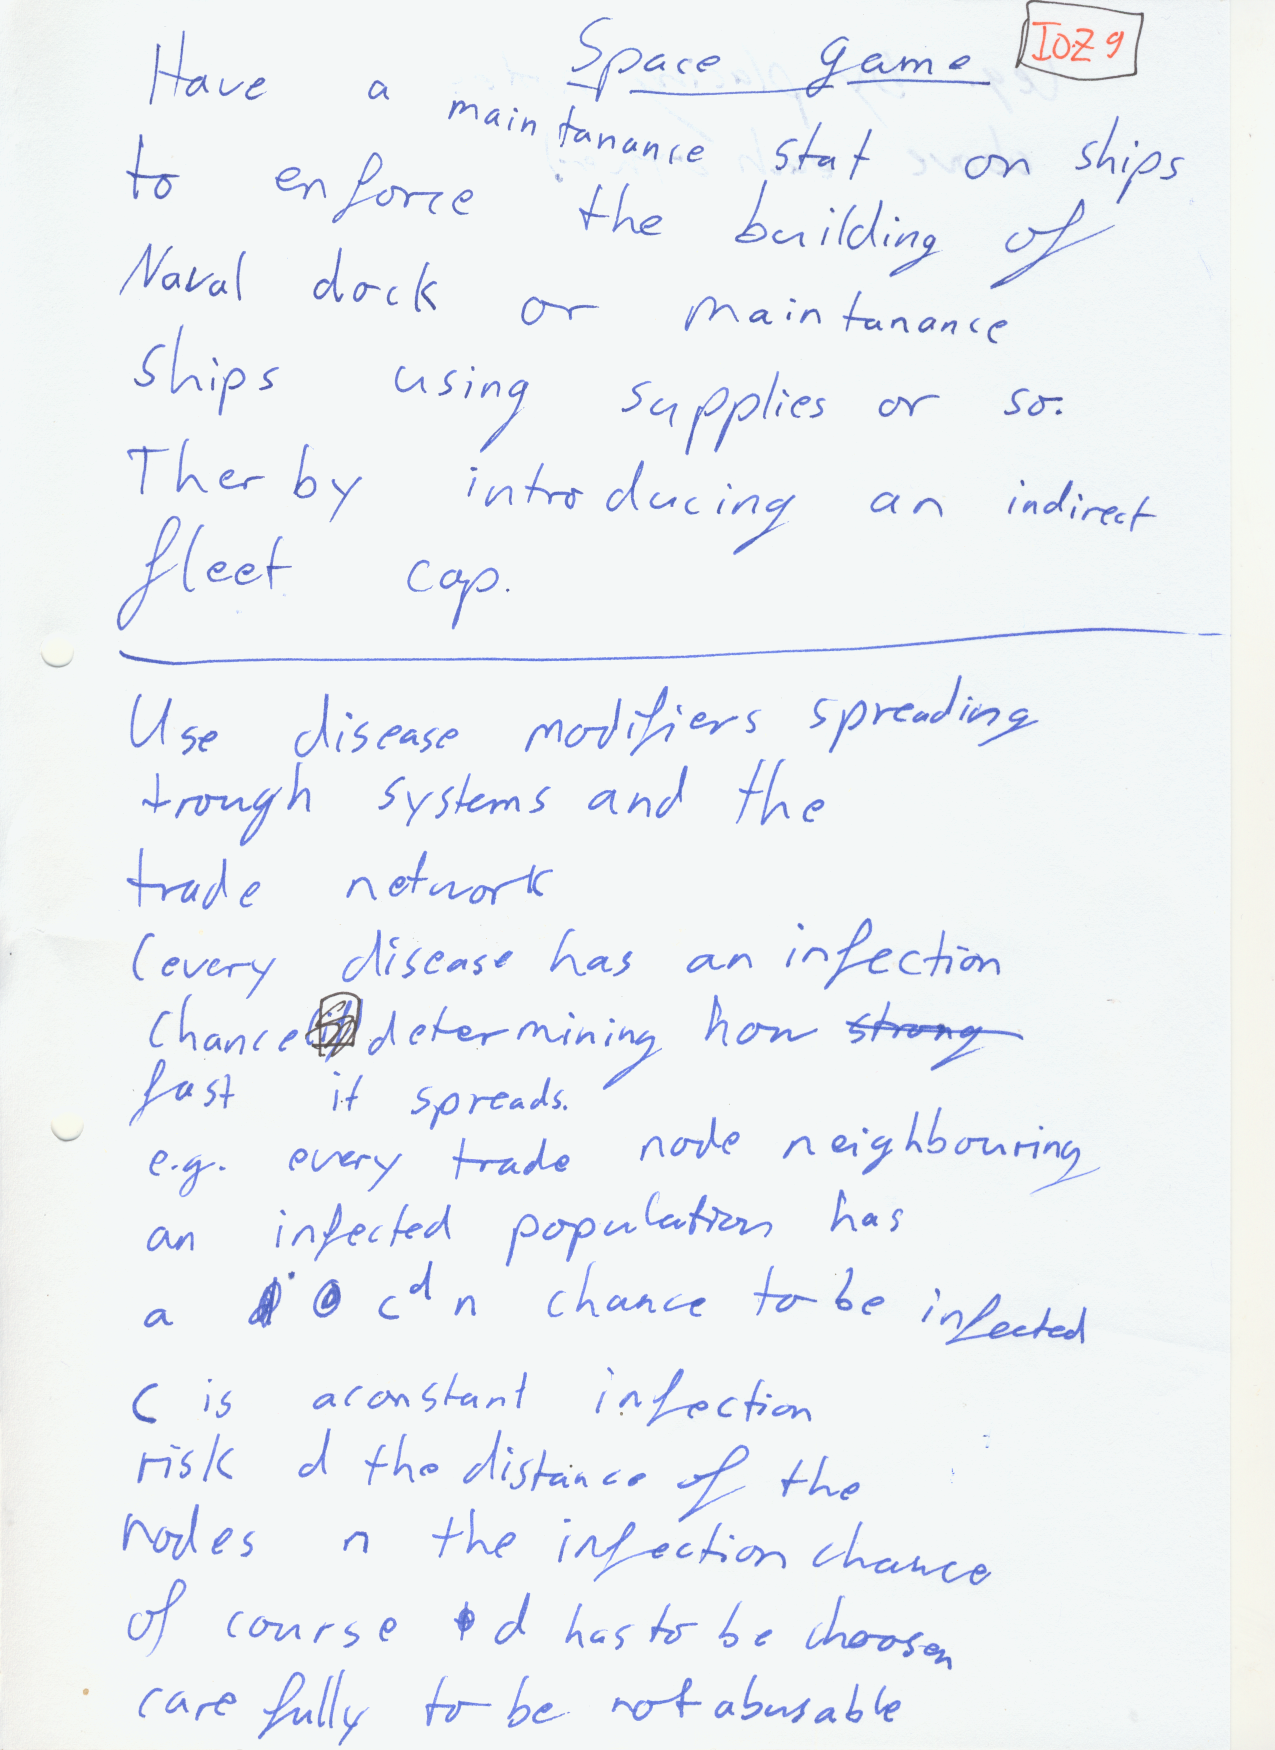 Space game
IOZ9
Have a maintanance stat on ships
to enforce the building of
Naval dock or maintanance
ships using supplies or so.
Therby introducing an indirect
fleet cap.
Use disease modifiers spreading
trough systems and the
trade network
(every disease has an infection
chance determining how strong
fast it spreads.
e.g. every trade node neighbouring
an infected population has
a c^d n chance to be infected
C is a constant infection
risk d the distance of the
nodes n the infection chance
of course d has to be choosen
carefully to be not abusable